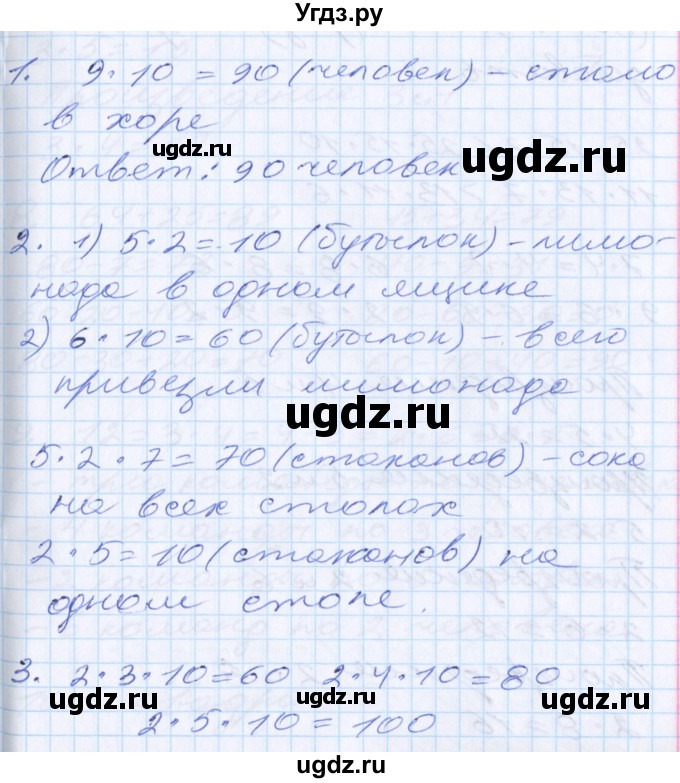 Угдз.ру
1. 9·10 = 90 (человек) – стало
в хоре
ugdz.ru
ugdz.ru
Ответ: 90 человек
2. 1) 5·2 = 10 (бутылок) – лимо-
нада в одном ящике
2) 6·10 = 60 (бутылок) – всего
привезли лимонада
ugdz.ru
5·2·7 = 70 (стаканов) – сока
на всех столах
ugdz.ru
2·5 = 10 (стаканов) на
одном столе.
3. 2·3·10 = 60 2·4·10 = 80
ugdz.ru
ugdz.ru
2·5·10 = 100
ugdz.ru